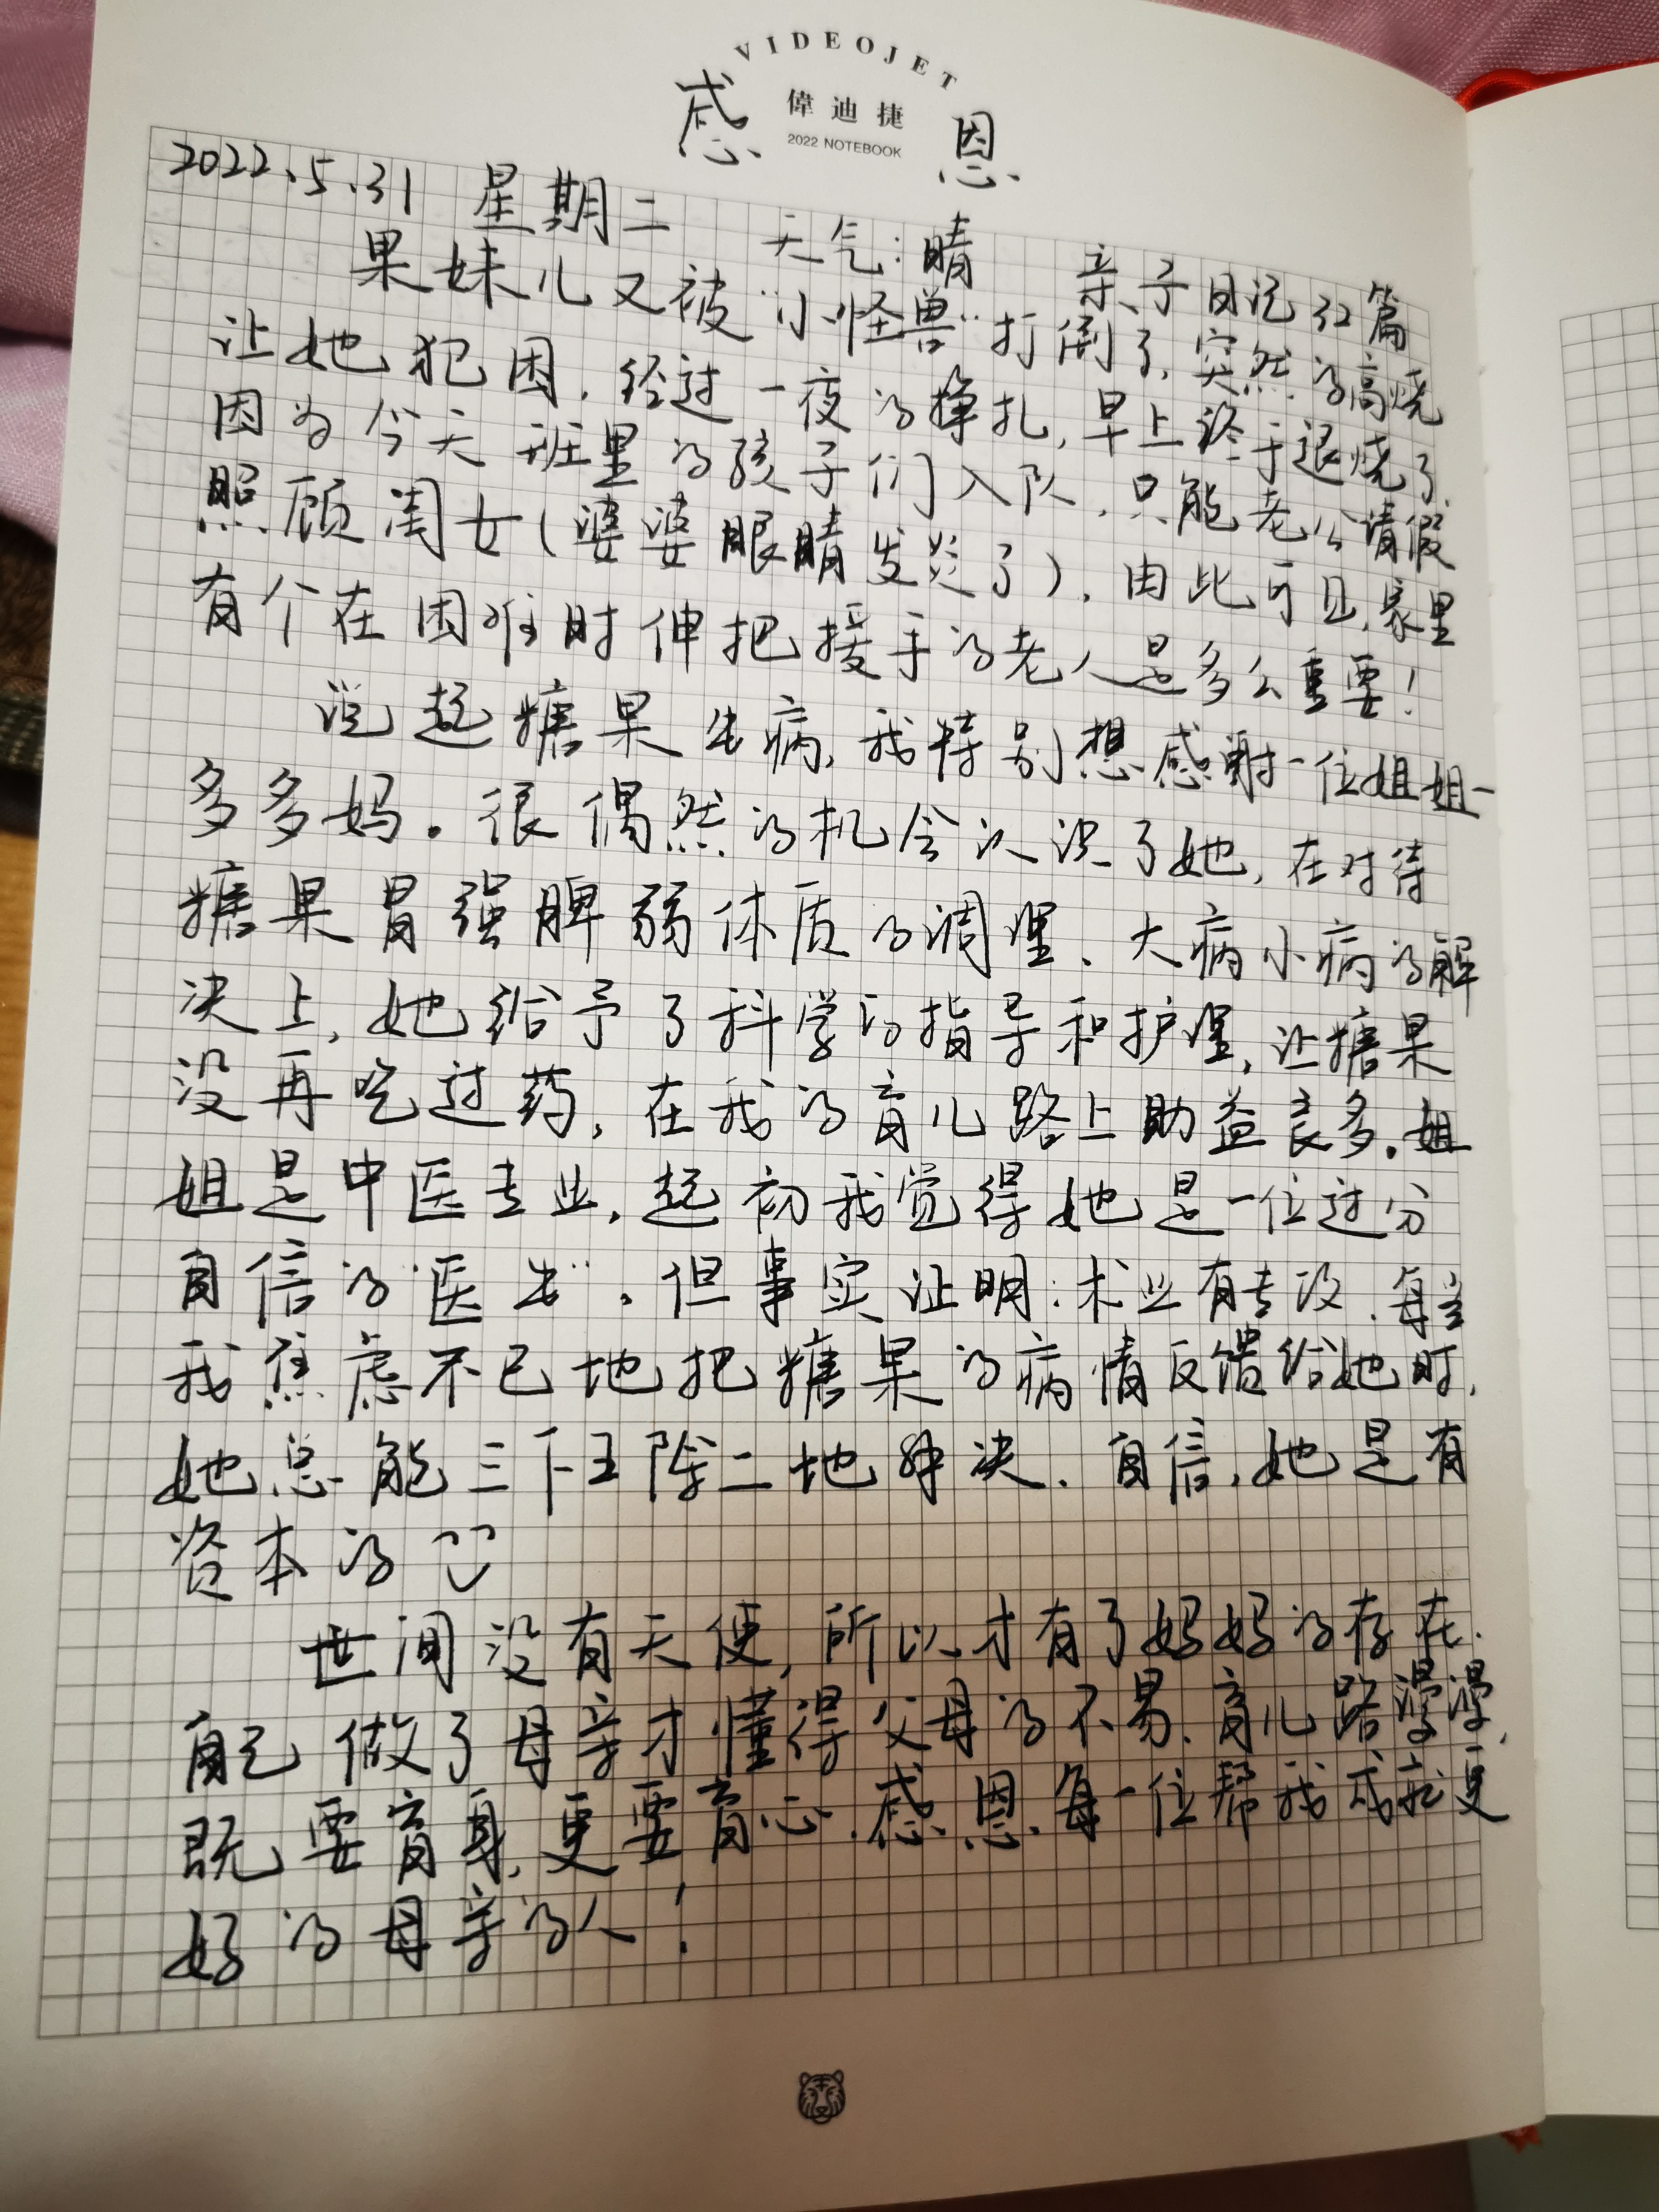 VIDEOJET
感 偉迪捷 恩
2022 NOTEBOOK
2022.5.31 星期二 天气:晴 亲子日记 32篇
果妹儿又被“小怪兽”打倒了,突然的高烧
让她犯困,经过一夜的挣扎,早上终于退烧了,
因为今天班里的孩子们入队,只能老公请假
照顾闺女(婆婆眼睛发炎了),由此可且,家里
有个在困难时伸把援手的老人是多么重要!
说起糖果生病,我特别想感谢一位姐姐-
多多妈。很偶然的机会认识了她,在对待
糖果胃强脾弱体质的调理、大病小病的解
决上,她给予了科学的指导和护理,让糖果
没再吃过药,在我的育儿路上助益良多。姐
姐是中医专业,起初我觉得她是一位过分
自信的“医生”。但事实证明:术业有专攻,每当
我焦虑不已地把糖果的病情反馈给她时,
她总能三下五除二地解决,自信,她是有
资本的
世间没有天使,所以才有了妈妈的存在.
自己做了母亲才懂得父母的不易,育儿路漫漫,
既要育身,更要育心.感恩每一位帮我成就更
好的母亲的人!